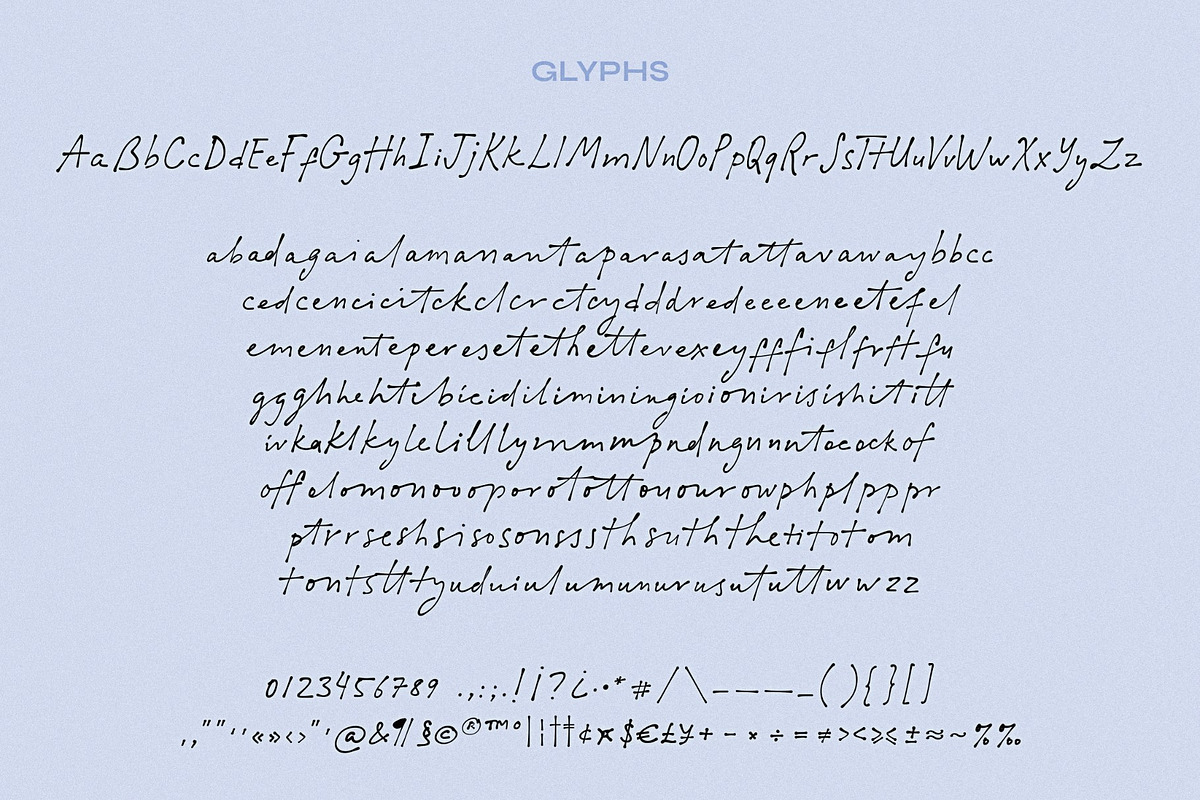 GLYPHS
AaBbCcDdEeFfGgHhIiJjKkLlMmNnOoPpQqRrSsTtUuVvWwXxYyZz
abadagaialamanantaparasatattavawaybbcc
cedcencicitckclcrctcydddredeeeeneetefel
emenenteperesetethettevexeyfffiflfrftfu
ggghhehtibicidiliminingioionirisishititt
ivkaklkylelilllymmmmpndngunnntocockof
offolomonovooporototttouourowphplpppr
ptrrseshsisosonsssthsuththetitotom
tontstttyuduiulumunurusututtwwzz
0123456789 .,:;.!¡?¿··*#/\-–—_(){}[]
‚„“”‘’«»‹›"'@&¶§©®™°|¦†‡¢¤$€£¥+−×÷=≠><≥≤±≈~%‰